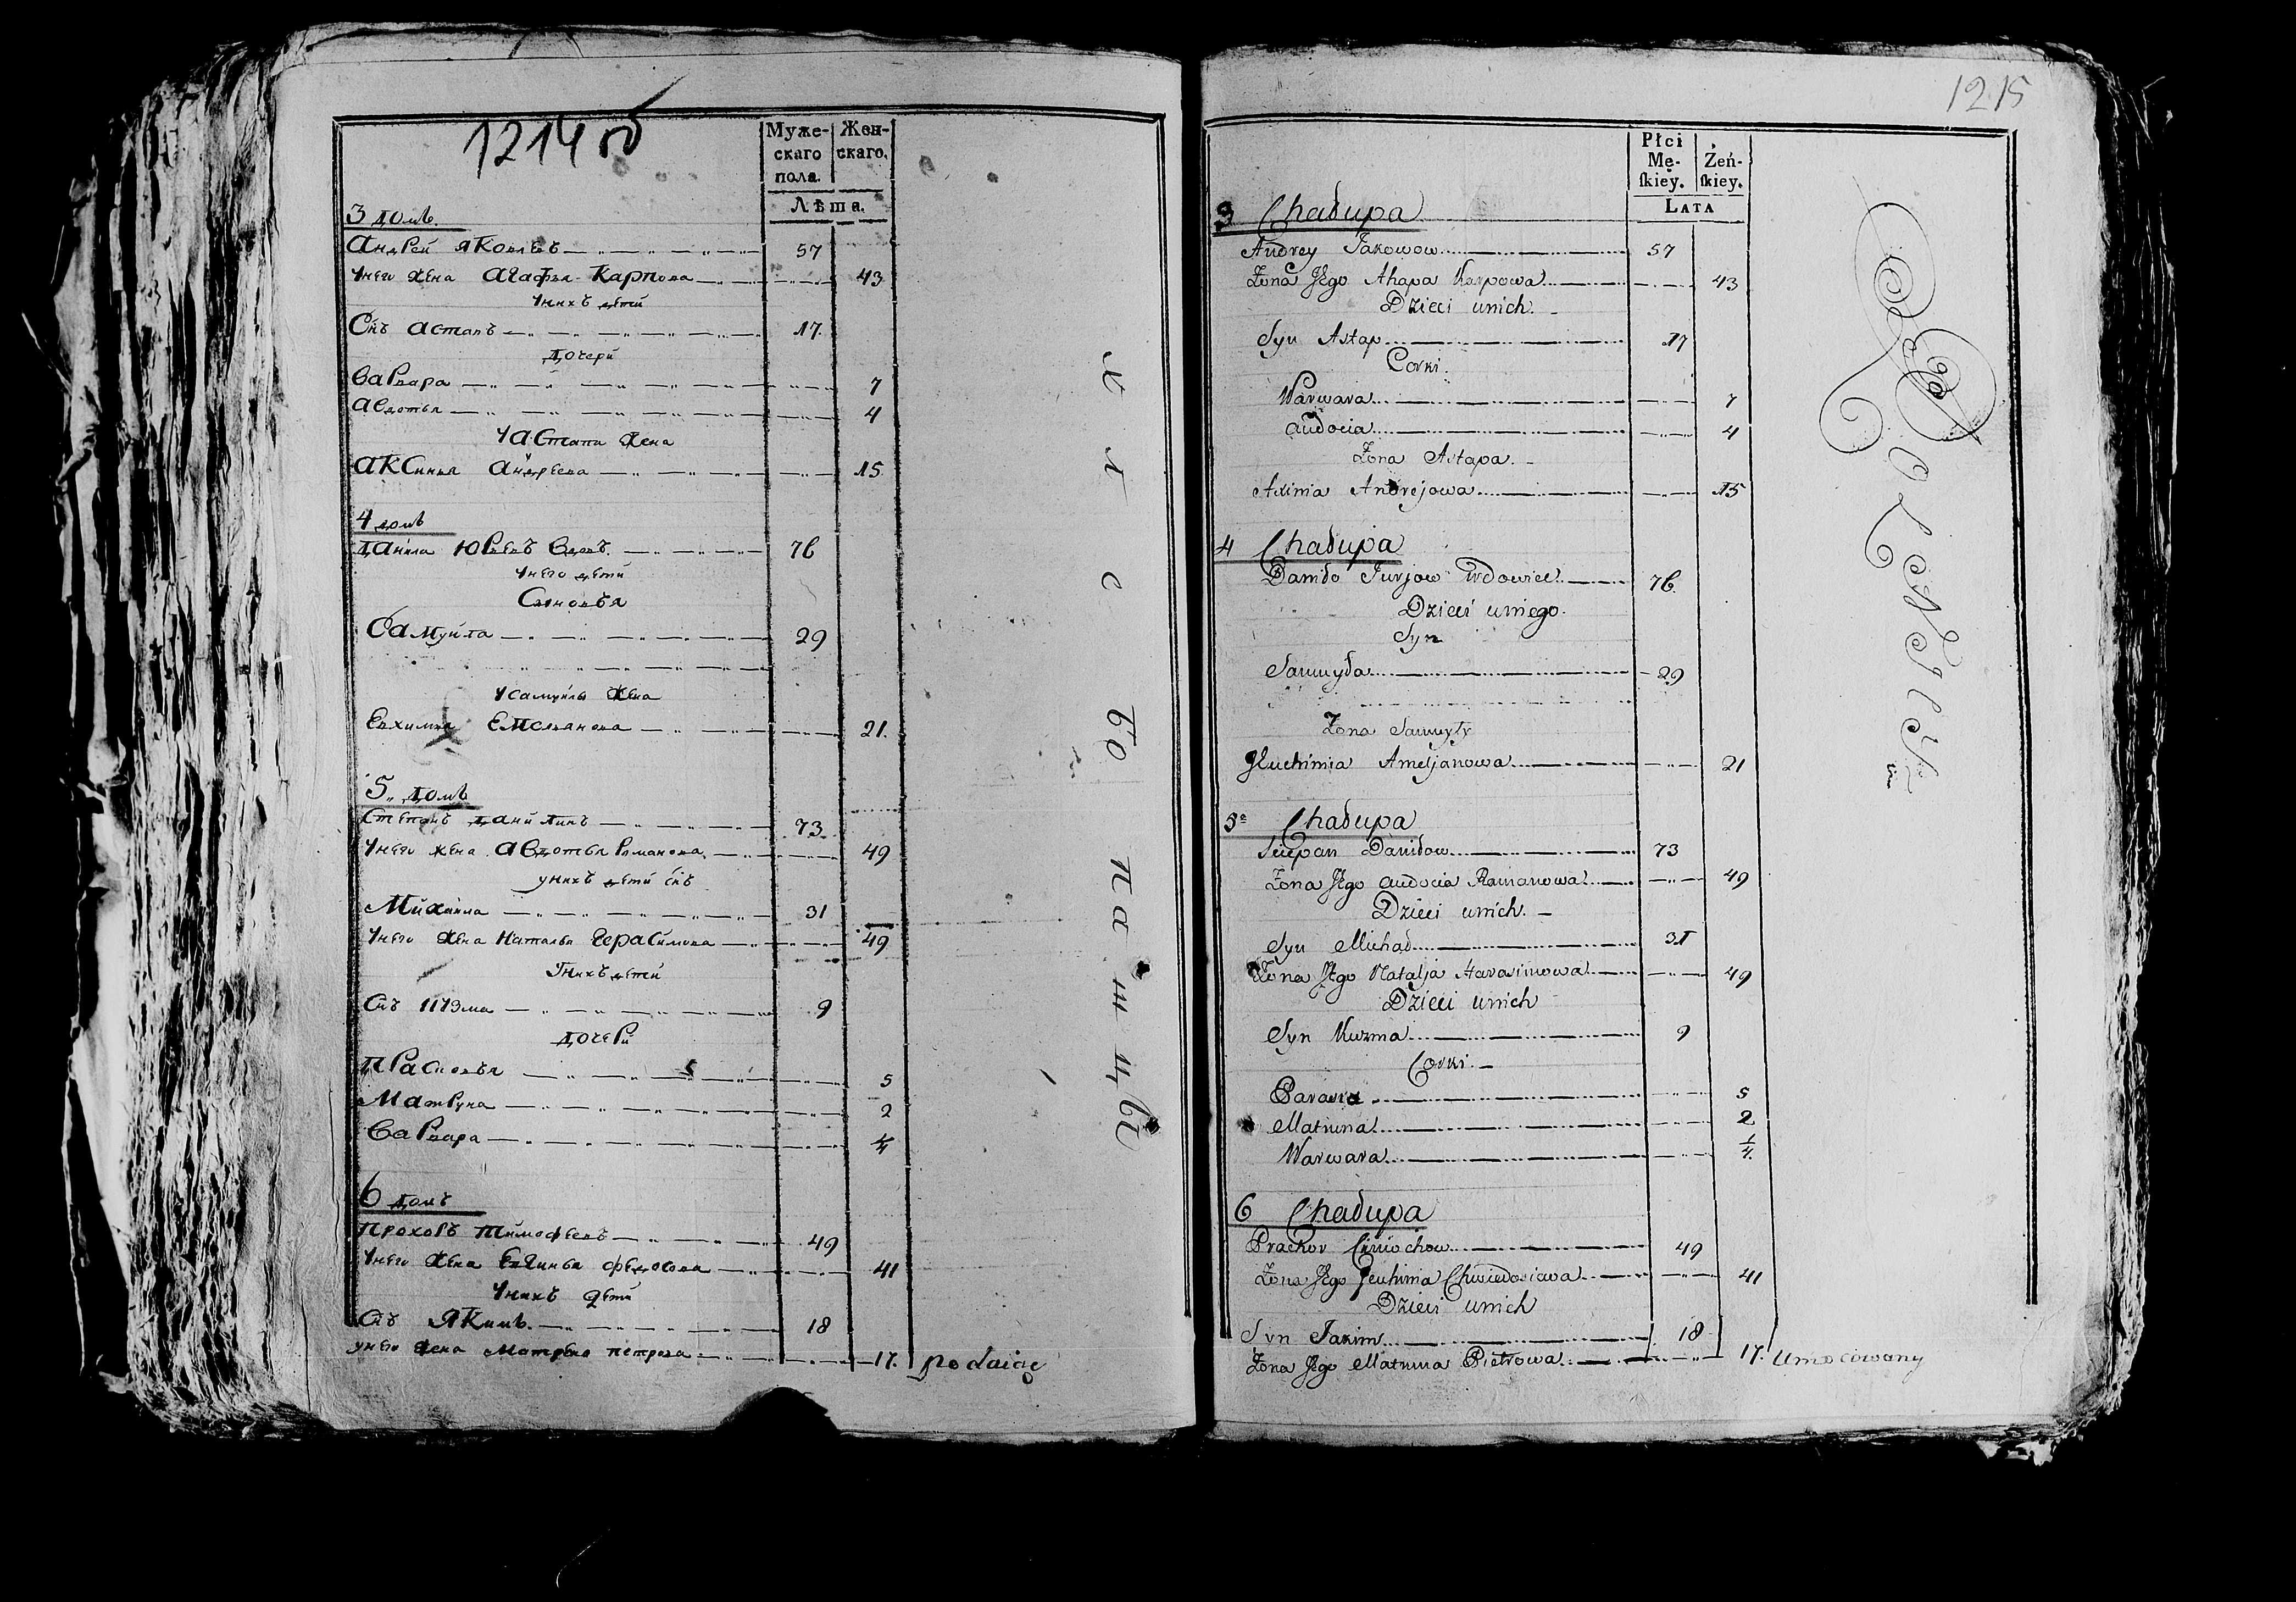 1214 об
Муже-
скаго
пола.
Жен-
скаго.
Лѣта.
3 домъ
Андрей Яковлевъ 57
Унего жена Агафья Карпова 43
Унихъ дети
Снъ Астапъ 17.
дочери
Варвара 7
Авдотья 4
У Астапа жена
Аксинья Андреева 15
4 домъ
Данила Юрьевъ вдовъ. 76
Унего дети
Сыновья
Самуйла 29
У самуйлы жена
Евхимья Емельянова 21.
5. домъ
Степанъ Данилинъ 73
Унего жена Авдотья Романова 49
унихъ дети снъ
Михайла 31
Унего жена Наталья Герасимова 49
Унихъ дети
Снъ Кузма 9
дочери
Прасковья 5
Матруна 2
Варвара 1/4
6 домъ
Прохоръ Тимофеевъ 49
Унего жена Евгинья Федосова 41
Унихъ дети
Снъ Якимъ 18
унего жена Матрена Петрова 17.
podaiąc
1215
Płci
Mę-
ſkiey.
Żeń-
ſkiey.
LATA
3 Chałupa
Andrey Jakowow 57
Żona Jego Ahapa Karpowa 43
Dzieci unich.
Syn Astap 17
Corki.
Warwara 7
Audocia 4
Żona Astapa.
Axinia Andrejowa 15
4 Chałupa
Daniło Jurjow Wdowiec 76.
Dzieci uniego.
Syn
Samuyła 29
Żona Samuyły
Jeuchimia Ameljanowa 21
5a Chałupa
Sciepan Daniłow 73
Żona Jego Audocia Ramanowa 49
Dzieci unich.
Syn Michał 31
Żona Jego Natalja Harasimowa 49
Dzieci unich
Syn Kuzma 9
Corki.
Paraska 5
Matruna 2
Warwara 1/4.
6 Chałupa
Prachor Cimochow 49
Żona Jego Jeuhinia Chwiedosiowa 41
Dzieci unich
Syn Jakim 18
Żona Jego Matruna Pietrowa 17.
Umocowany